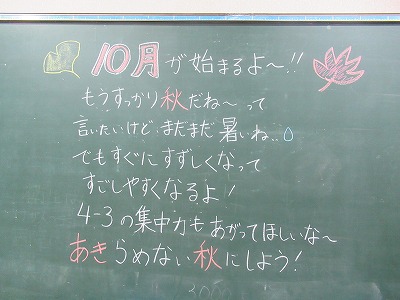 10月が始まるよ～!!
もうすっかり秋だね～って
言いたいけど、まだまだ暑いね..
でもすぐにすずしくなって
すごしやすくなるよ!
4-3の集中力もあがってほしいな～
あきらめない秋にしよう!